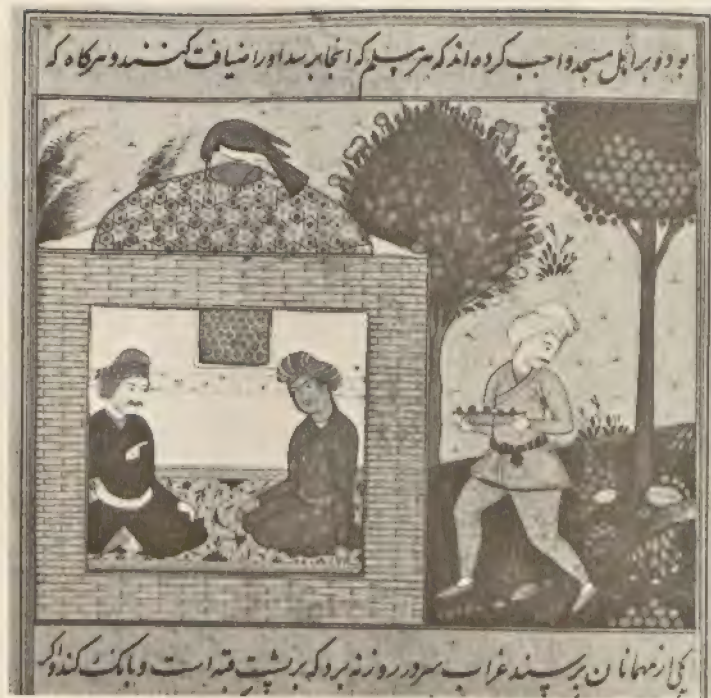 بود و بر اهل مسجد واجب کرده‌اند که هر مسلم که انجا برسد او را ضیافت کنند و هرکاه که
یکی از مهمانان برسند غراب سر در روزنه برد که بر پشت قبه است و بانک کند و اکر